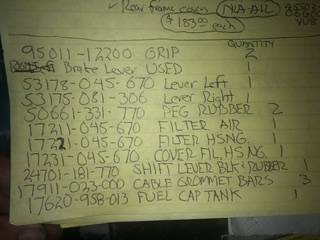 ✓ Rear frame covers N/A-ALL
$183.00 each
QUANTITY
95011-12200 GRIP 2
Brake Lever USED 1
53178-045-670 Lever Left 1
53175-081-306 Lever Right 1
50661-331-770 PEG RUBBER 2
17211-045-670 FILTER AIR 1
17221-045-670 FILTER HSNG 1
17231-045-670 COVER FIL, HSNG 1
24701-181-770 SHIFT LEVER BLK & RUBBER 1
17911-023-000 CABLE GROMMET BARS 3
17620-958-013 FUEL CAP TANK 1